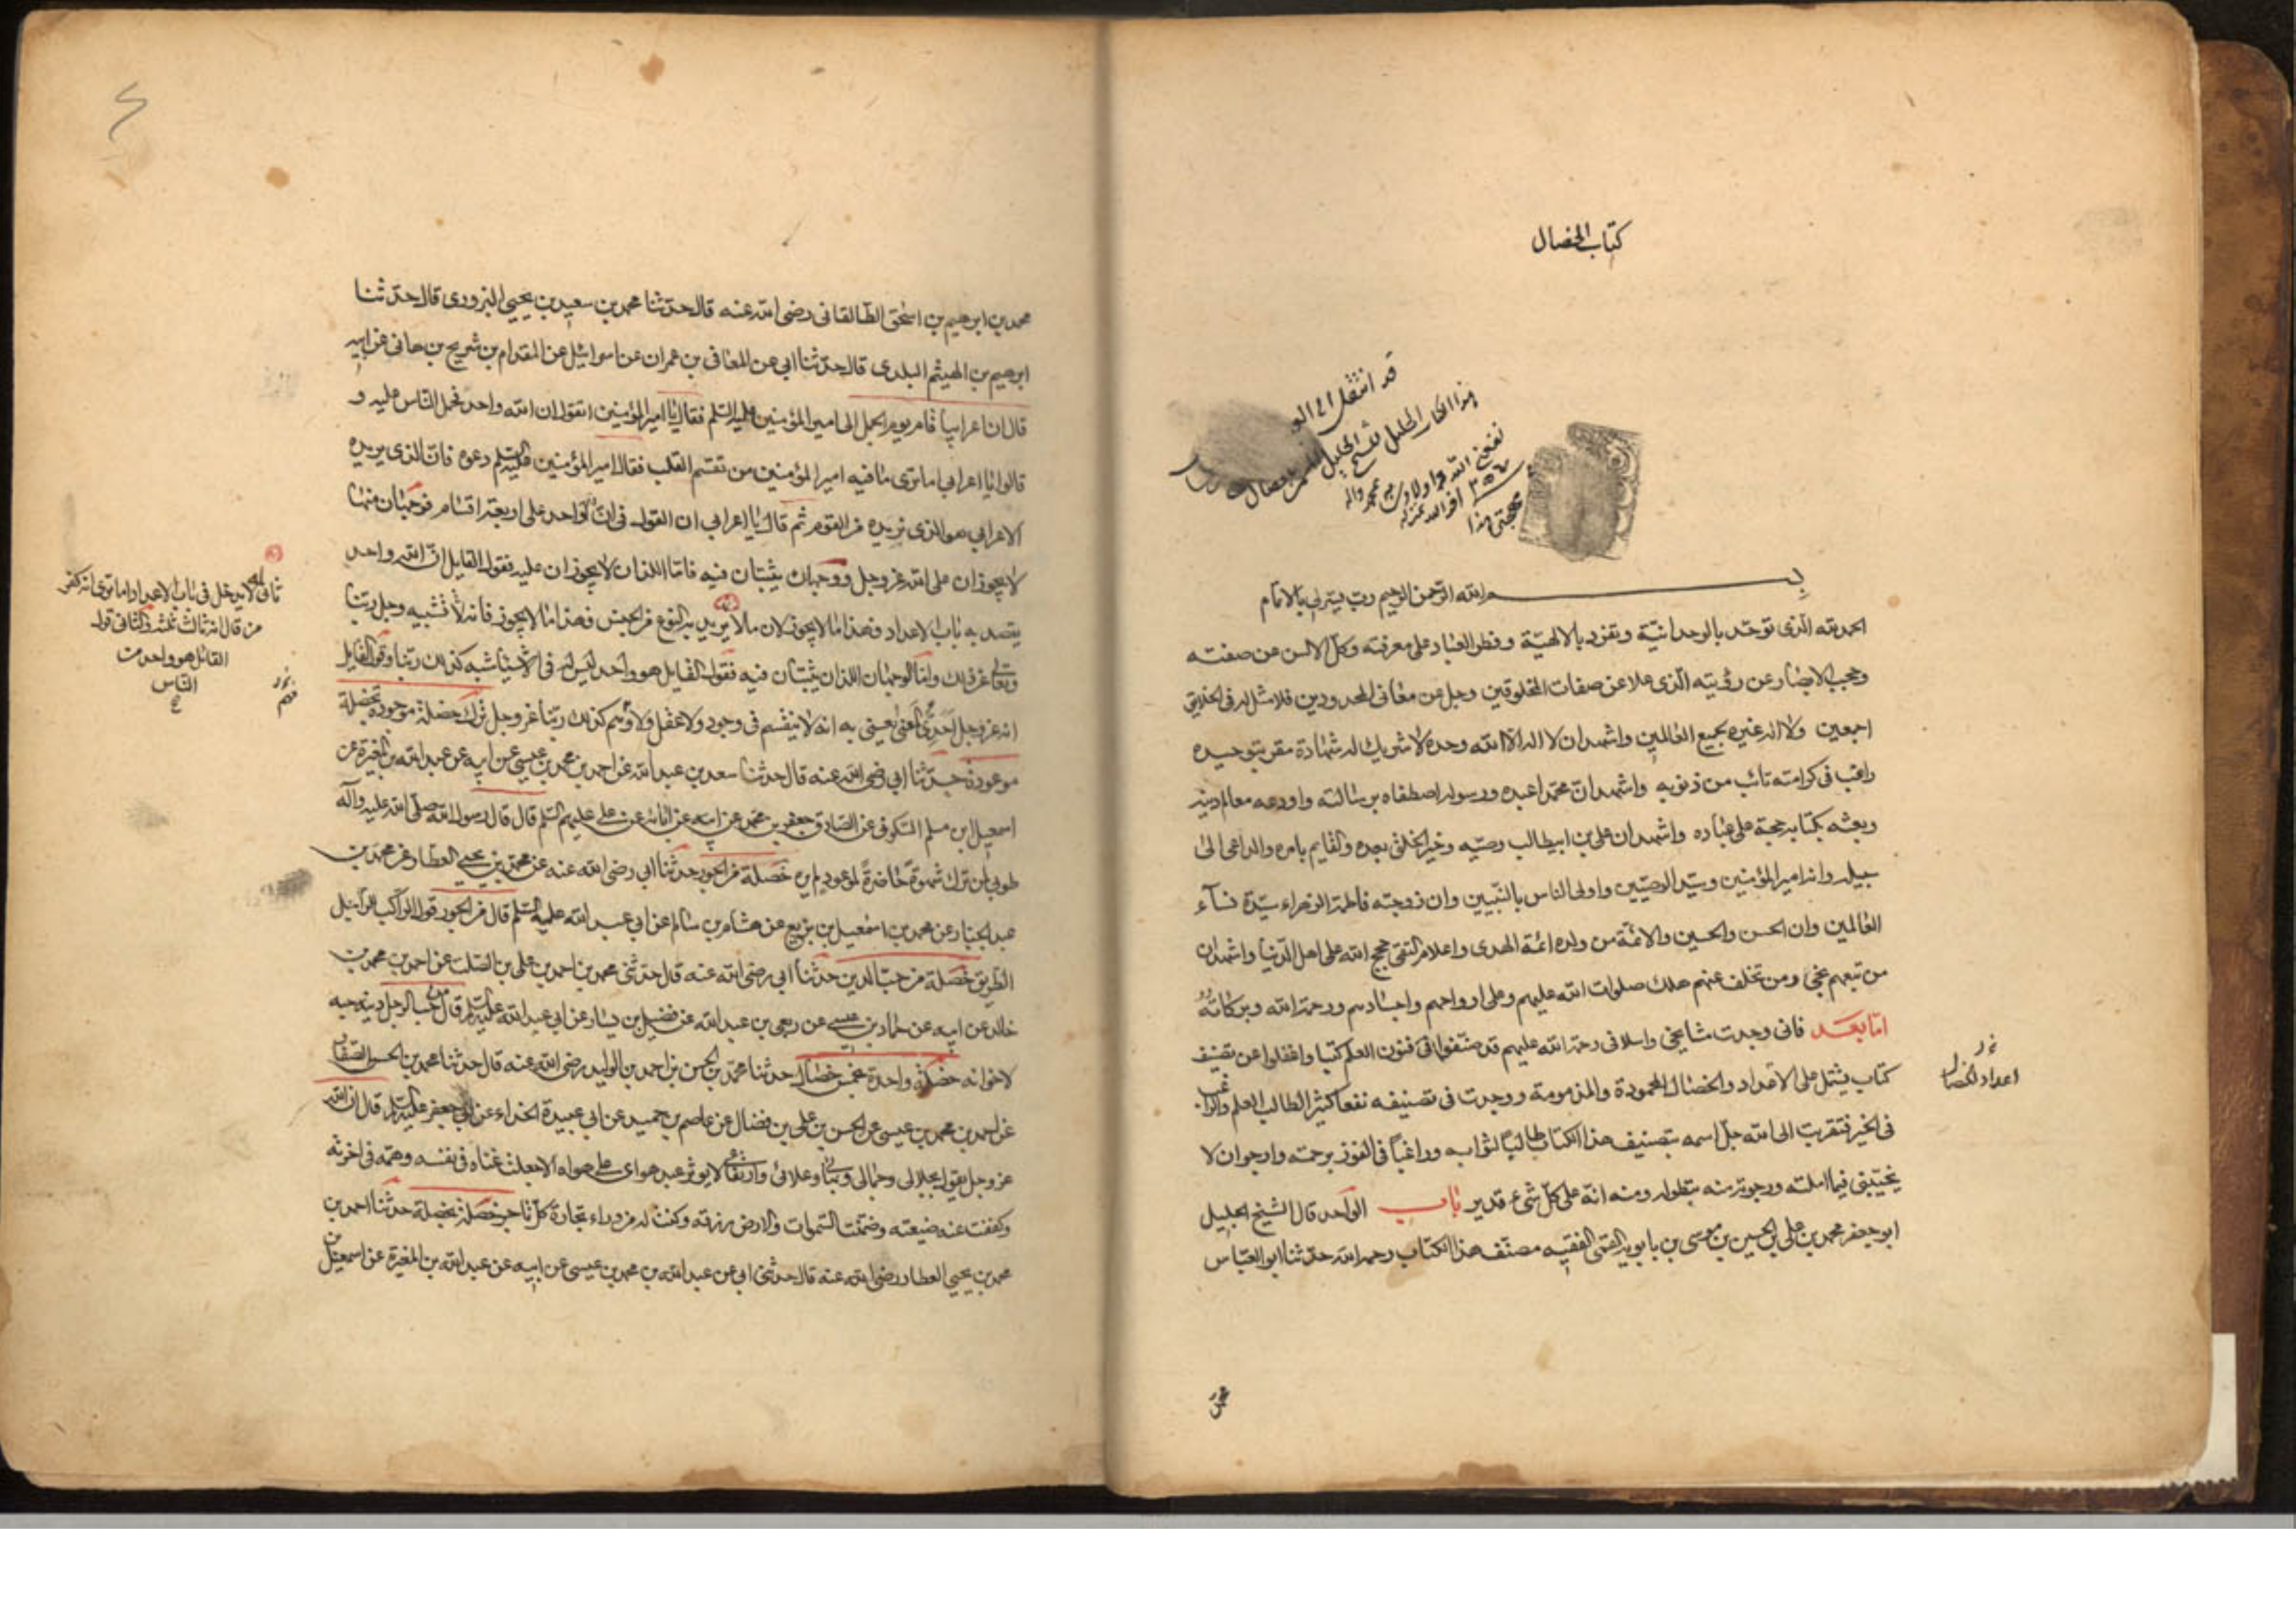 كتاب الخصال
قد انتقل الى
هذا الكتاب الجليل
بسم الله الرحمن الرحيم رب يسر لي بالاتمام
الحمد لله الذي توحد بالوحدانية وتفرد بالالهية وفطر العباد على معرفته وكلّ الالسن عن صفته
وحجب الابصار عن رؤيته الذي علا عن صفات المخلوقين وجل عن معانى المحدودين فلا مثل له في الخلايق
اجمعين ولا اله غيره لجميع العالمين واشهد ان لا اله الا الله وحده لا شريك له شهادة مقر بتوحيده
راغب في كرامته تائب من ذنوبه واشهد انّ محمدا عبده ورسوله اصطفاه برسالته واودعه معالم دينه
وبعثه بكتابه حجة على عباده واشهد ان علي بن ابيطالب وصيه وخير الخلق بعده والقايم بامره والداعى الى
سبيله وانه امير المؤمنين وسيد الوصيين واولى الناس بالنبيين وان زوجته فاطمة الزهراء سيّدة نسآء
العالمين وان الحسن والحسين والائمة من ولده ائمة الهدى واعلام التقى حجج الله على اهل الدنيا واشهد ان
من تبعهم نجى ومن تخلف عنهم هلك صلوات الله عليهم وعلى ارواحهم واجسادهم ورحمة الله وبركاته
اما بعد فانى وجدت مشايخي واسلافى رحمة الله عليهم قد صنفوا في فنون العلم كتبا واغفلوا عن تصنيف
كتاب يشتمل على الاعداد والخصال المحمودة والمذمومة ووجدت في تصنيفه نفعا كثيرا لطالب العلم والراغب
في الخير فتقربت الى الله جل اسمه بتصنيف هذا الكتاب طالبا لثوابه وراغبا في الفوز برحمته وارجو ان لا
يخيبني فيما املته ورجوته منه بتطوله ومنه انه على كلّ شىء قدير باب الواحد قال الشيخ الجليل
ابو جعفر محمد بن علي بن الحسين بن موسى بن بابويه القمى الفقيه مصنّف هذا الكتاب رحمه الله حدثنا ابو العباس
اعداد الخصال
محمد
محمد بن ابرهيم بن اسحق الطالقانى رضى الله عنه قال حدثنا محمد بن سعيد بن يحيى البزورى قال حدثنا
ابرهيم بن الهيثم البلدى قال حدثنا ابي عن المعافى بن عمران عن اسرائيل عن المقدام بن شريح بن هانى عن ابيه
قال ان اعرابيا قام يوم الجمل الى امير المؤمنين عليه السلم فقال يا امير المؤمنين اتقول ان الله واحد فحمل الناس عليه و
قالوا يا اعرابي اما ترى ما فيه امير المؤمنين من تقسم القلب فقال امير المؤمنين عليه السلم دعوه فان الذى يريده
الاعرابي هو الذى نريده من القوم ثم قال يا اعرابي ان القول في ان الله واحد على اربعة اقسام فوجهان منها
لا يجوزان على الله عز وجل ووجهان يثبتان فيه فاما اللذان لا يجوزان عليه فقول القايل ان الله واحد
يقصد به باب الاعداد فهذا ما لا يجوز لان ما لا يريد به النوع من الجنس فهذا ما لا يجوز فانه تشبيه وجل ربنا
وتعالى عن ذلك واما الوجهان اللذان يثبتان فيه فقول القايل هو واحد ليس له في الاشياء شبه كذلك ربنا وقول القايل
انه عز وجل احدى المعنى يعنى به انه لا ينقسم في وجود ولا عقل ولا وهم كذلك ربنا عز وجل ترك خصلة موجودة بخصلة
موعودة حدثنا ابي رضى الله عنه قال حدثنا سعد بن عبد الله عن احمد بن محمد بن عيسى عن ابيه عن عبد الله بن المغيرة عن
اسمعيل بن مسلم السكونى عن الصادق جعفر بن محمد عن ابيه عن ابائه عن على عليهم السلم قال قال رسول الله صلى الله عليه وآله
طوبى لمن ترك شهوة حاضرة لموعود لم يره خصلة من الجور حدثنا ابي رضى الله عنه عن محمد بن يحيى العطار عن محمد بن
عبد الجبار عن محمد بن اسمعيل بن بزيع عن هشام بن سالم عن ابي عبد الله عليه السلم قال من الجور قول الراكب للراجل
الطريق خصلة من حب الدين حدثنا ابي رضى الله عنه قال حدثنى محمد بن احمد بن على بن الصلت عن احمد بن محمد بن
خالد عن ابيه عن حماد بن عيسى عن ربعى بن عبد الله عن فضيل بن يسار عن ابي عبد الله عليه السلم قال من حب الرجل دينه حبه
لاخوانه خصلة واحدة بخمس خصال حدثنا محمد بن الحسن بن احمد بن الوليد رضى الله عنه قال حدثنا محمد بن الحسن الصفار
عن احمد بن محمد بن عيسى عن الحسن بن على بن فضال عن عاصم بن حميد عن ابي عبيدة الحذاء عن ابي جعفر عليه السلم قال ان الله
عز وجل يقول بجلالى وجمالى وبهائى وعلائى وارتفاعى لا يوثر عبد هواى على هواه الا جعلت غناه في نفسه وهمّه في اخرته
وكففت عنه ضيعته وضمنت السموات والارض رزقه وكنت له من وراء تجارة كل تاجر خصلة بخصلة حدثنا احمد بن
محمد بن يحيى العطار رضى الله عنه قال حدثنى ابي عن عبد الله بن محمد بن عيسى عن ابيه عن عبد الله بن المغيرة عن اسمعيل بن
ثانى له لا يدخل في باب الاعداد اما ترى انه كفر
من قال انه ثالث ثلثة وكقول
القائل هو واحد من
الناس